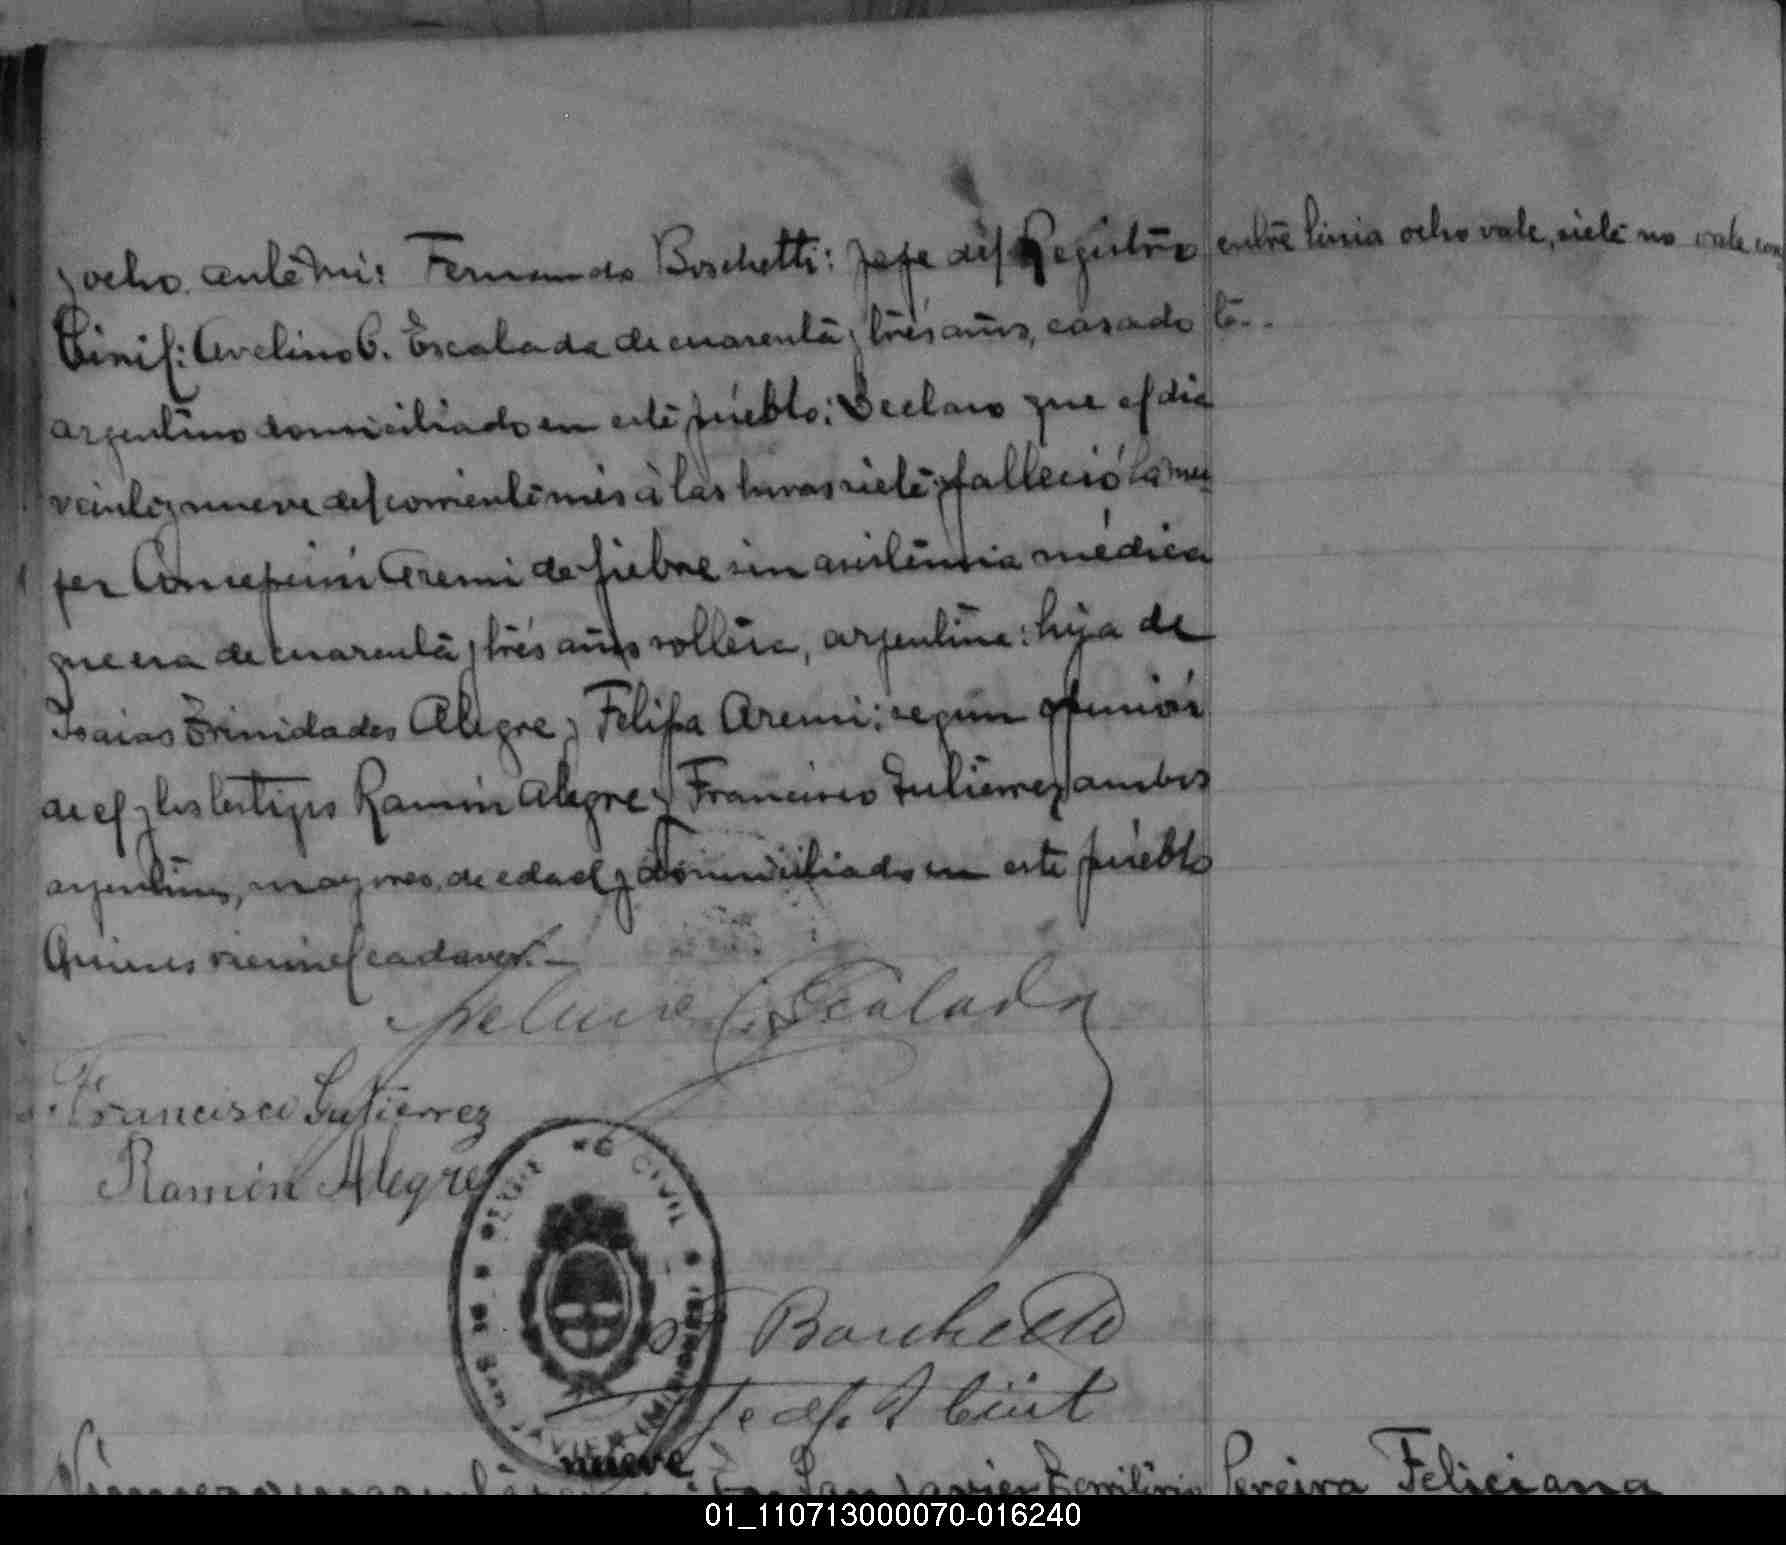 y ocho ante mi: Fernando Boschetti: Jefe del Registro
Civil: Avelino C. Escalada de cuarenta y tres años, casado
argentino domiciliado en este pueblo: Declaro que el dia
veinte y nueve del corriente mes à las horas siete falleció la mu
jer Concepción Aremi de fiebre sin asistencia médica
que era de cuarenta y tres años soltera, argentina: hija de
Isaias Trinidades Alegre y Felipa Aremi: según opinión
de el y los testigos Ramón Alegre y Francisco Gutiérrez ambos
argentinos, mayores de edad y domiciliado en este pueblo
Quienes vieron el cadaver.—
entre linia ocho vale, siete no vale con
te..
Avelino C. Escalada
Francisco Gutierrez
Ramón Alegre
REG CIVIL
F Boschetti
Je del R Civil
nueve
Número cuarenta : En San Javier Territorio
Pereira Feliciana
01_110713000070-016240